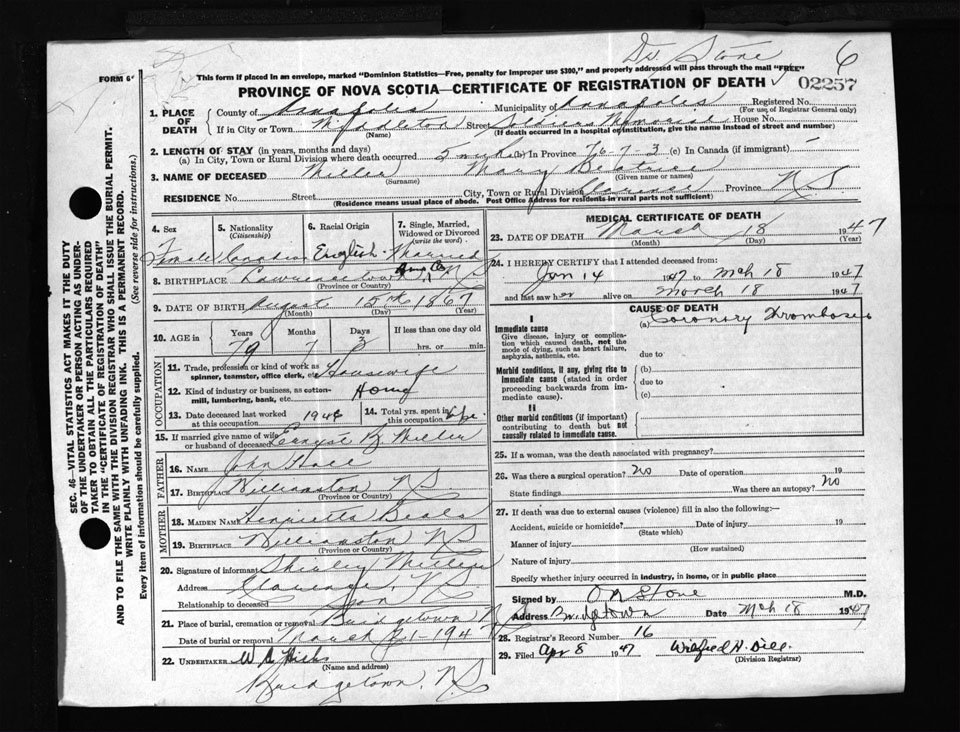 Dr. Stone 6
FORM 6
This form if placed in an envelope, marked "Dominion Statistics—Free, penalty for improper use $300," and properly addressed will pass through the mail "FREE"
PROVINCE OF NOVA SCOTIA—CERTIFICATE OF REGISTRATION OF DEATH 02257
1. PLACE OF DEATH County of Annapolis Municipality of Annapolis Registered No.
(For use of Registrar General only)
If in City or Town Middleton Street Soldiers Memorial House No.
(Name) (If death occurred in a hospital or institution, give the name instead of street and number)
2. LENGTH OF STAY (in years, months and days)
(a) In City, Town or Rural Division where death occurred 5 (b) In Province 76-7-3 (c) In Canada (if immigrant) -
3. NAME OF DECEASED Miller Mary Beatrice
(Surname) (Given name or names)
RESIDENCE No. Street City, Town or Rural Division Clarence Province N.S.
(Residence means usual place of abode. Post Office Address for residents in rural parts not sufficient)
4. Sex 5. Nationality 6. Racial Origin 7. Single, Married, Widowed or Divorced
(Citizenship) (write the word)
Female Canadian English Married
8. BIRTHPLACE Lawrencetown Anna Co N.S.
(Province or Country)
9. DATE OF BIRTH August 15th 1867
(Month) (Day) (Year)
10. AGE in Years Months Days If less than one day old
79 7 3 hrs. or min.
OCCUPATION
11. Trade, profession or kind of work as spinner, teamster, office clerk, etc. Housewife
12. Kind of industry or business, as cotton-mill, lumbering, bank, etc. Home
13. Date deceased last worked at this occupation 1946 14. Total yrs. spent in this occupation Life
15. If married give name of wife or husband of deceased Ernest B. Miller
FATHER
16. NAME John Hall
17. BIRTHPLACE Williamston N.S.
(Province or Country)
MOTHER
18. MAIDEN NAME Henrietta Beals
19. BIRTHPLACE Williamston N.S.
(Province or Country)
20. Signature of informant Shirley Miller
Address Clarence, N.S.
Relationship to deceased Son
21. Place of burial, cremation or removal Bridgetown N.S.
Date of burial or removal March 21-1947
22. UNDERTAKER W. A. Hicks
(Name and address)
Bridgetown, N.S.
MEDICAL CERTIFICATE OF DEATH
23. DATE OF DEATH March 18 1947
(Month) (Day) (Year)
24. I HEREBY CERTIFY that I attended deceased from:
Jan 14 1947 to Mch 18 1947
and last saw her alive on March 18 1947
CAUSE OF DEATH
I
Immediate cause (a) Coronary Thrombosis
Give disease, injury or complication which caused death, not the mode of dying, such as heart failure, asphyxia, asthenia, etc. due to
Morbid conditions, if any, giving rise to immediate cause (stated in order proceeding backwards from immediate cause). (b)
due to
(c)
II
Other morbid conditions (if important) contributing to death but not causally related to immediate cause.
25. If a woman, was the death associated with pregnancy?
26. Was there a surgical operation? No Date of operation 19
State findings Was there an autopsy? No
27. If death was due to external causes (violence) fill in also the following:—
Accident, suicide or homicide? Date of injury 19
(State which)
Manner of injury
(How sustained)
Nature of injury
Specify whether injury occurred in industry, in home, or in public place
Signed by Stone M.D.
Address Bridgetown Date Mch 18 1947
28. Registrar's Record Number 16
29. Filed Apr 8 1947 Wilfred H. Dill
(Division Registrar)
SEC. 46—VITAL STATISTICS ACT MAKES IT THE DUTY
OF THE UNDERTAKER OR PERSON ACTING AS UNDER-
TAKER TO OBTAIN ALL THE PARTICULARS REQUIRED
IN THE "CERTIFICATE OF REGISTRATION OF DEATH"
AND TO FILE THE SAME WITH THE DIVISION REGISTRAR WHO SHALL ISSUE THE BURIAL PERMIT.
WRITE PLAINLY WITH UNFADING INK. THIS IS A PERMANENT RECORD.
Every item of information should be carefully supplied. (See reverse side for instructions.)